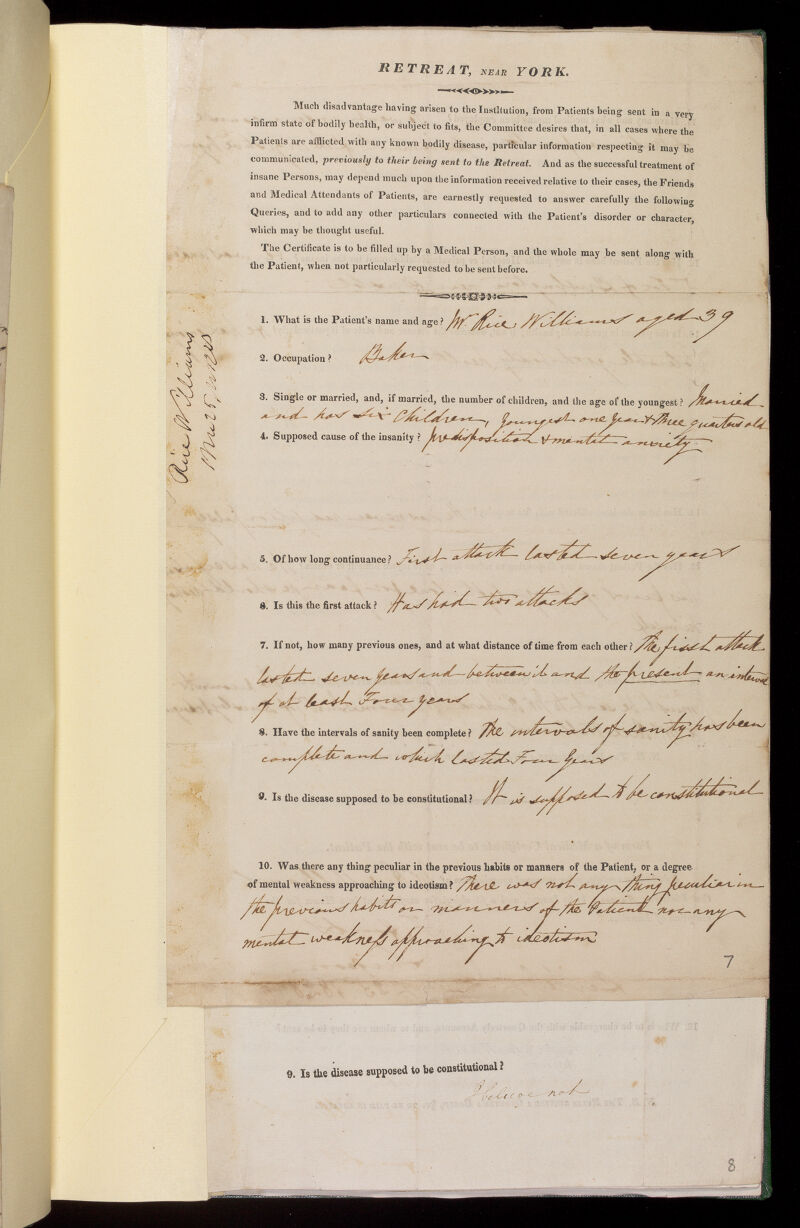 RETREAT, NEAR YORK.
Much disadvantage having arisen to the Institution, from Patients being sent in a very
infirm state of bodily health, or subject to fits, the Committee desires that, in all cases where the
Patients are afflicted with any known bodily disease, particular information respecting it may be
communicated, previously to their being sent to the Retreat. And as the successful treatment of
insane Persons, may depend much upon the information received relative to their cases, the Friends
and Medical Attendants of Patients, are earnestly requested to answer carefully the following
Queries, and to add any other particulars connected with the Patient's disorder or character,
which may be thought useful.
The Certificate is to be filled up by a Medical Person, and the whole may be sent along with
the Patient, when not particularly requested to be sent before.
1. What is the Patient's name and age? Mr Rice Williams aged 39
2. Occupation? Baker
3. Single or married, and, if married, the number of children, and the age of the youngest? Married
and has six Children, Youngest one Year & three quarters old
4. Supposed cause of the insanity? predisposition & mental anxiety
5. Of how long continuance? First attack lasted seven years
6. Is this the first attack? Has had two attacks
7. If not, how many previous ones, and at what distance of time from each other? The first attack
lasted seven years and between it and the present an interval
of at least Four years
8. Have the intervals of sanity been complete? The intervals of sanity has been
complete and which lasted Four Years
9. Is the disease supposed to be constitutional? It is supposed to be constitutional
10. Was there any thing peculiar in the previous habits or manners of the Patient, or a degree
of mental weakness approaching to ideotism? There was not any thing peculiar in
the previous habits or manners of the Patient nor any
mental weakness approaching to ideotism
7
Rice Williams
9. Is the disease supposed to be constitutional?
I believe not
8